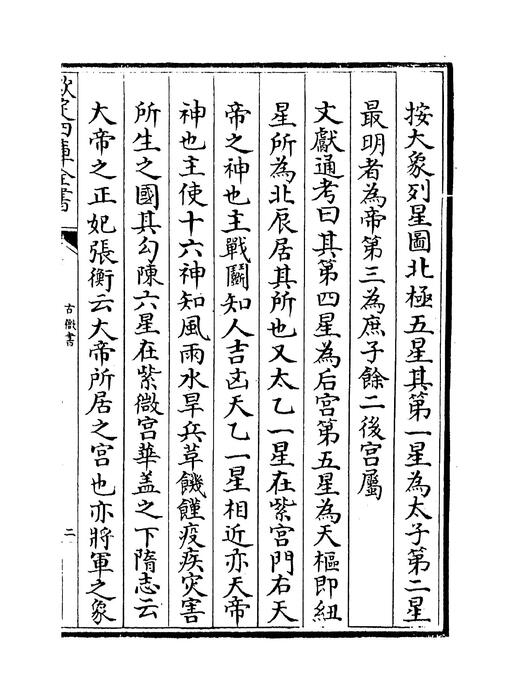 按大象列星圖北極五星其第一星為太子第二星
最明者為帝第三為庶子餘二後宮屬
文獻通考曰其第四星為后宮第五星為天樞即紐
星所為北辰居其所也又太乙一星在紫宮門右天
帝之神也主戰鬭知人吉凶天乙一星相近亦天帝
神也主使十六神知風雨水旱兵革饑饉疫疾灾害
所生之國其勾陳六星在紫微宮華盖之下隋志云
大帝之正妃張衡云大帝所居之宮也亦將軍之象
欽定四庫全書
古微書
二